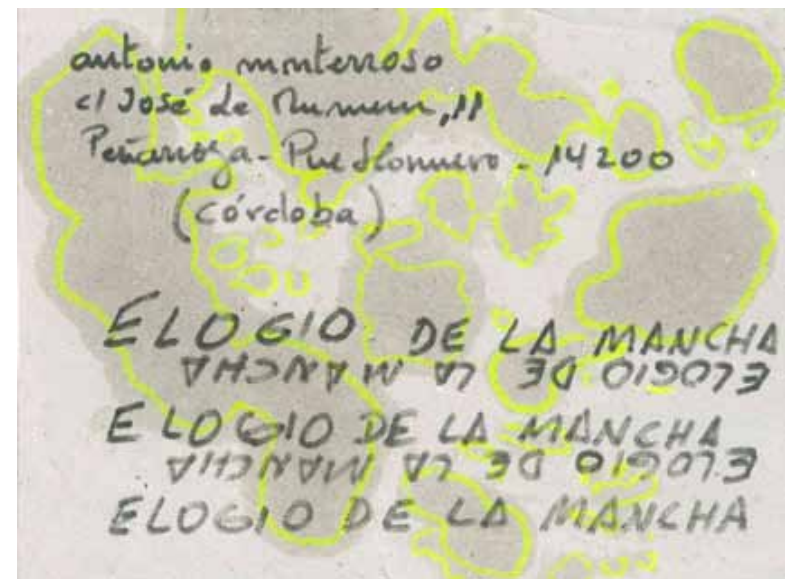 antonio monterroso
c/ José de Mumeur, 11
Peñarroya-Pueblonuevo - 14200
(córdoba)
ELOGIO DE LA MANCHA
ELOGIO DE LA MANCHA
ELOGIO DE LA MANCHA
ELOGIO DE LA MANCHA
ELOGIO DE LA MANCHA